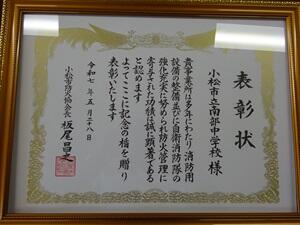 表彰状
小松市立南部中学校様
貴事業所は多年にわたり消防用
設備の整備並びに自衛消防隊の
強化充実に努められ防火管理に
寄与された功績は誠に顕著である
と認めます
よってここに記念の楯を贈り
表彰いたします
令和七年五月二十八日
小松市防火協会長 坂尾昌之